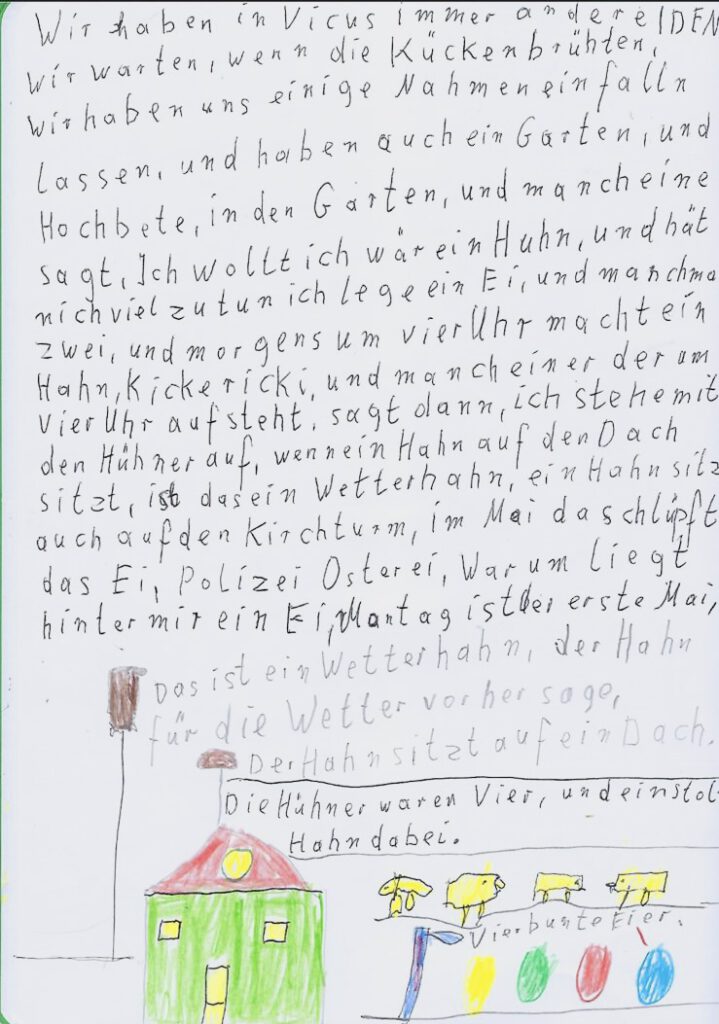 Wir haben in Vicus immer andere IDEN
wir warten, wenn die Kückenbrühten,
wir haben uns einige Nahmen einfalln
lassen, und haben auch ein Garten, und
Hochbete, in den Garten, und mancheine
sagt, Ich wollt ich wär ein Huhn, und hät
nich viel zu tun ich lege ein Ei, und manchma
zwei, und morgens um vier Uhr macht ein
Hahn, Kickericki, und mancheiner der um
vier Uhr aufsteht, sagt dann, ich stehe mit
den Hühner auf, wenn ein Hahn auf den Dach
sitzt, ist das ein Wetterhahn, ein Hahn sitz
auch auf den Kirchturm, im Mai da schlüpft
das Ei, Polizei Osterei, War um liegt
hinter mir ein Ei, Mantag ist der erste Mai,
Das ist ein Wetterhahn, der Hahn
für die Wetter vorher sage,
Der Hahn sitzt auf ein Dach.
Die Hühner waren Vier, und ein stol
Hahn dabei.
Vier bunte Eier.